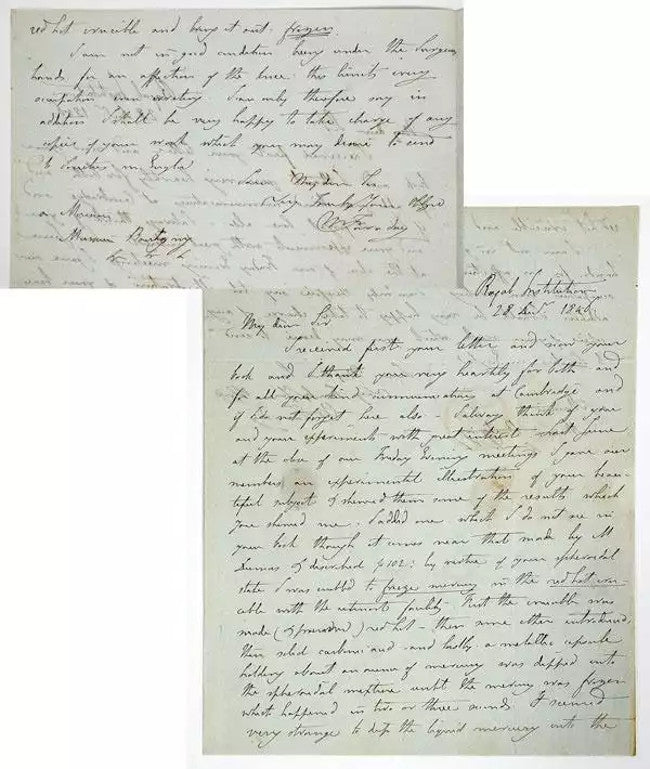 Royal Institution
28 Dec 1846
My dear Sir
I received first your letter and now your
book and I thank you very heartily for both and
for all your kind communications at Cambridge and
if I do not forget here also. I always think of you
and your experiments with great interest. Last June
at the close of our Friday Evening meetings I gave our
members an experimental illustration of your beau-
tiful subject & shewed them some of the results which
you shewed me. I added one which I do not see in
your book though it comes near that made by M
Dumas & described p 102: by virtue of your spheroidal
state I was enabled to freeze mercury in the red hot cru-
cible with the utmost facility. First the crucible was
made (& preserved) red hot - then some ether introduced
then solid carbonic acid - and lastly a metallic capsule
holding about an ounce of mercury was dipped into
the spheroidal mixture until the mercury was frozen
which happened in two or three seconds. It seemed
very strange to dip the liquid mercury into the
red hot crucible and bring it out frozen.
I am not in good condition being under the Surgeons
hands for an affection of the knee. this limits every
occupation even writing. I can only therefore say in
addition I shall be very happy to take charge of any
copies of your work which you may desire to send
to Societies in England
I am My dear Sir
Very Truly Yours Obliged
M Faraday
a Monsieur
Monsieur Boutigny